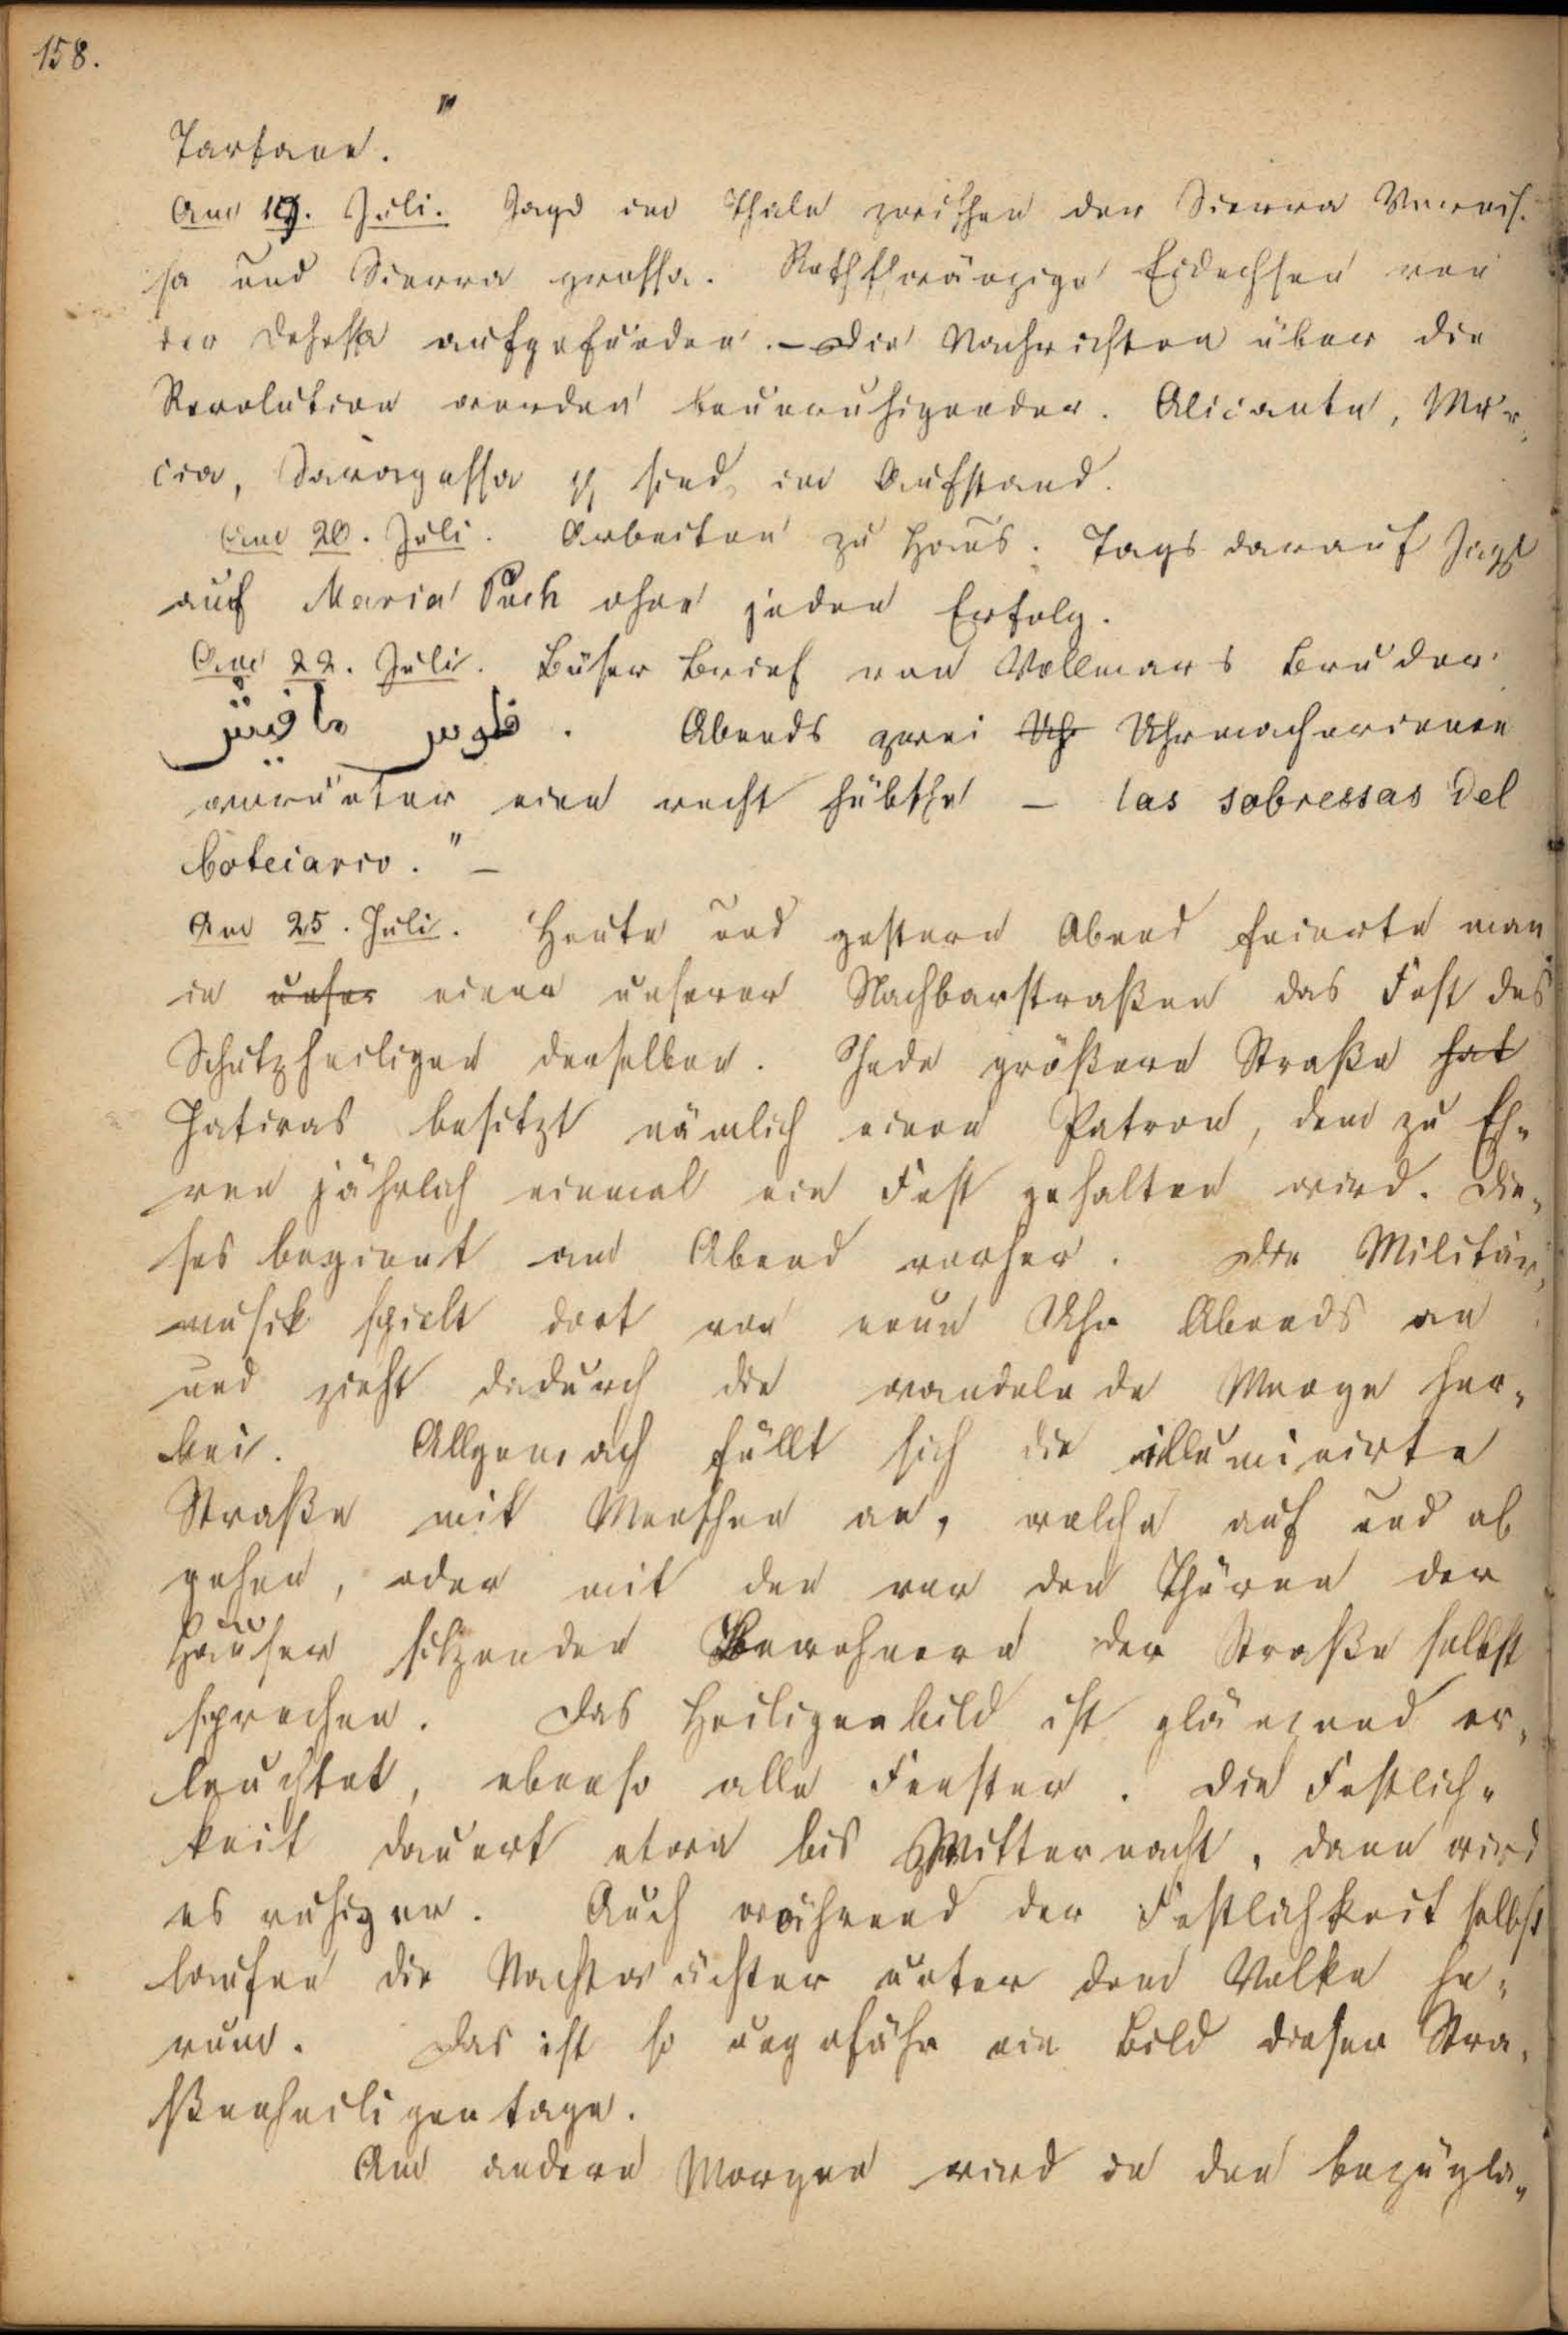 158.
Tartane."
Am 19. Juli. Jagd im Thale zwischen der Sierra Vernis-
sa und Sierra grossa. Rothschwänzige Eidechsen von
der Dehessa aufgefunden. – Die Nachrichten über die
Revolution werden beunruhigender. Alicante, Mur-
cia, Saragossa pp sind im Aufstand.
Am 20. Juli. Arbeiten zu Haus. Tags darauf Jagd
auf Maria Puch ohne jeden Erfolg.
Am 22. Juli. Böser Brief von Vollmars Bruder
فلوس مافيش. Abends zwei Uhr Uhrmacherinnen
worunter eine recht hübsche – las sobressas del
boteciario." –
Am 25. Juli. Heute und gestern Abend feierte man
in unser einer unserer Nachbarstraßen das Fest des
Schutzheiligen derselben. Jede größere Straße hat
Jativas besitzt nämlich einen Patron, dem zu Eh-
ren jährlich einmal ein Fest gehalten wird. Die-
ses beginnt am Abend vorher. Die Militär-
musik spielt dort von neun Uhr Abends an
und zieht dadurch die wandelnde Menge her-
bei. Allgemach füllt sich die illuminirte
Straße mit Menschen an, welche auf und ab
gehen, oder mit den vor den Thüren der
Häuser sitzenden Bewohnern der Straße selbst
sprechen. Das Heiligenbild ist glänzend er-
leuchtet, ebenso alle Fenster. Die Festlich-
keit dauert etwa bis Mitternacht, dann wird
es ruhiger. Auch während der Festlichkeit selbst
laufen die Nachtwächter unter dem Volke he-
rum. Das ist so ungefähr ein Bild dieser Stra-
ßenheiligentage.
Am andern Morgen wird in den bezügli-